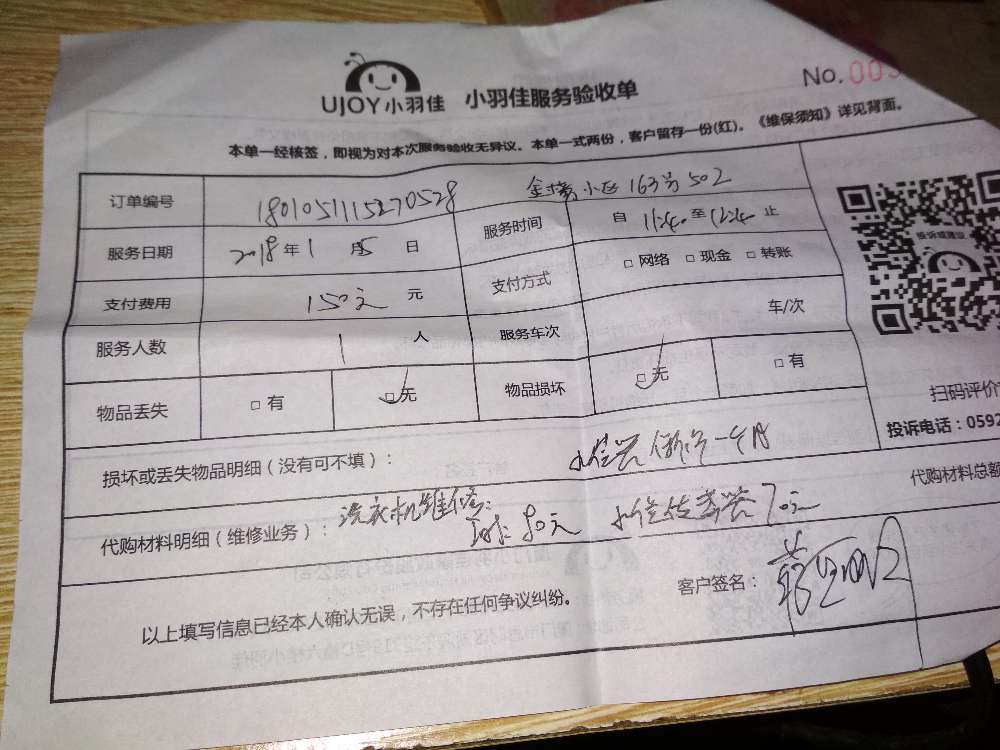 UJOY小羽佳 小羽佳服务验收单 No.003
本单一经核签，即视为对本次服务验收无异议。本单一式两份，客户留存一份(红)。《维保须知》详见背面。
订单编号 1801051115270528 163号502
服务日期 2018年1月5日 服务时间 自 11:40 至 12:40 止
支付费用 150元 元 支付方式 □网络 □现金 □转账
服务人数 1 人 服务车次 车/次
物品丢失 □有 □无 物品损坏 □无 □有
投诉或建议
扫码评价
投诉电话：0592
损坏或丢失物品明细（没有可不填）： 保修一个月
代购材料明细（维修业务）： 洗衣机维修： 80元 水位传感器70元
代购材料总额
以上填写信息已经本人确认无误，不存在任何争议纠纷。 客户签名：